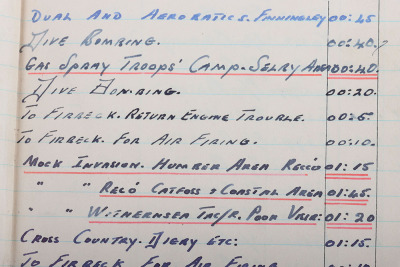 DUAL AND AEROBATICS. FINNINGLEY 00:45
DIVE BOMBING. 00:40.
GAS SPRAY TROOPS' CAMP. SELBY AREA 00:40.
DIVE BOMBING. 00:20.
TO FIRBECK. RETURN ENGINE TROUBLE. 00:5.
TO FIRBECK. FOR AIR FIRING. 00:10.
MOCK INVASION. HUMBER AREA RECCO 01:15
" " RECO CATFOSS & COASTAL AREA 01:45.
" " WITHERNSEA TAC/R. POOR VISIB: 01:20
CROSS COUNTRY. DIGBY ETC: 01:15.
TO FIRBECK FOR AIR FIRING